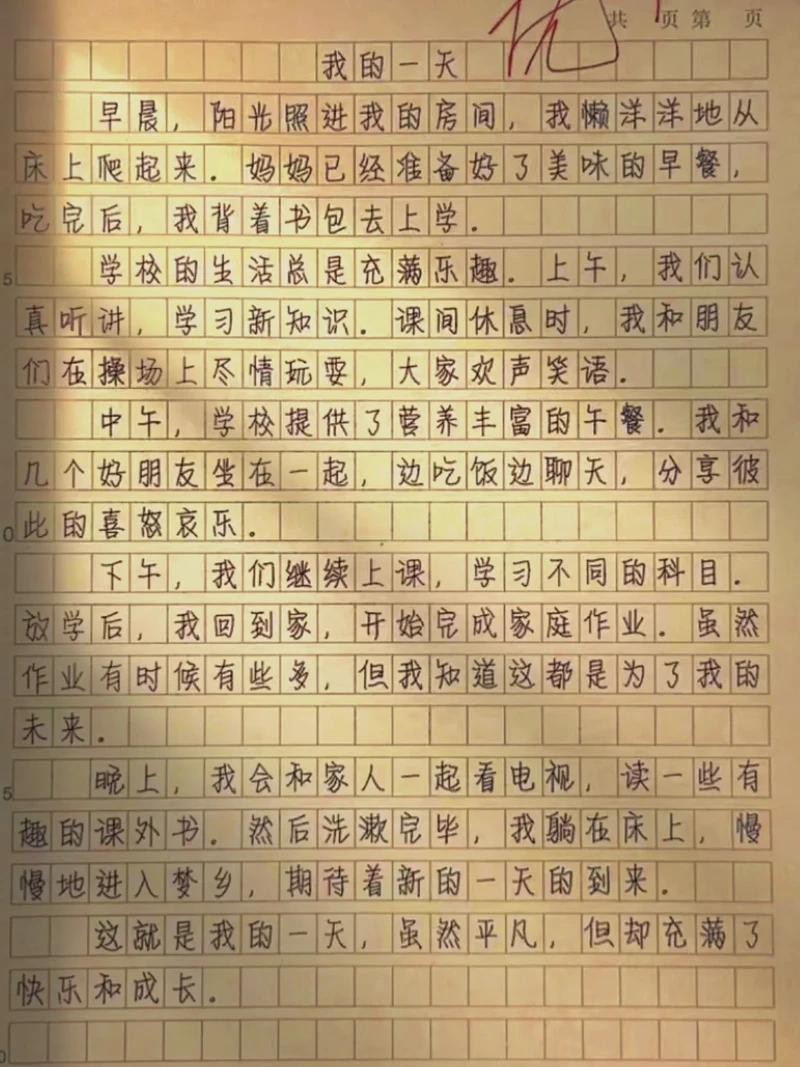 共 页 第 页
优
我的一天
早晨，阳光照进我的房间，我懒洋洋地从
床上爬起来．妈妈已经准备好了美味的早餐，
吃完后，我背着书包去上学．
5
学校的生活总是充满乐趣．上午，我们认
真听讲，学习新知识．课间休息时，我和朋友
们在操场上尽情玩耍，大家欢声笑语．
中午，学校提供了营养丰富的午餐．我和
几个好朋友坐在一起，边吃饭边聊天，分享彼
0
此的喜怒哀乐．
下午，我们继续上课，学习不同的科目．
放学后，我回到家，开始完成家庭作业．虽然
作业有时候有些多，但我知道这都是为了我的
未来．
5
晚上，我会和家人一起看电视，读一些有
趣的课外书．然后洗漱完毕，我躺在床上，慢
慢地进入梦乡，期待着新的一天的到来．
这就是我的一天，虽然平凡，但却充满了
快乐和成长．
0